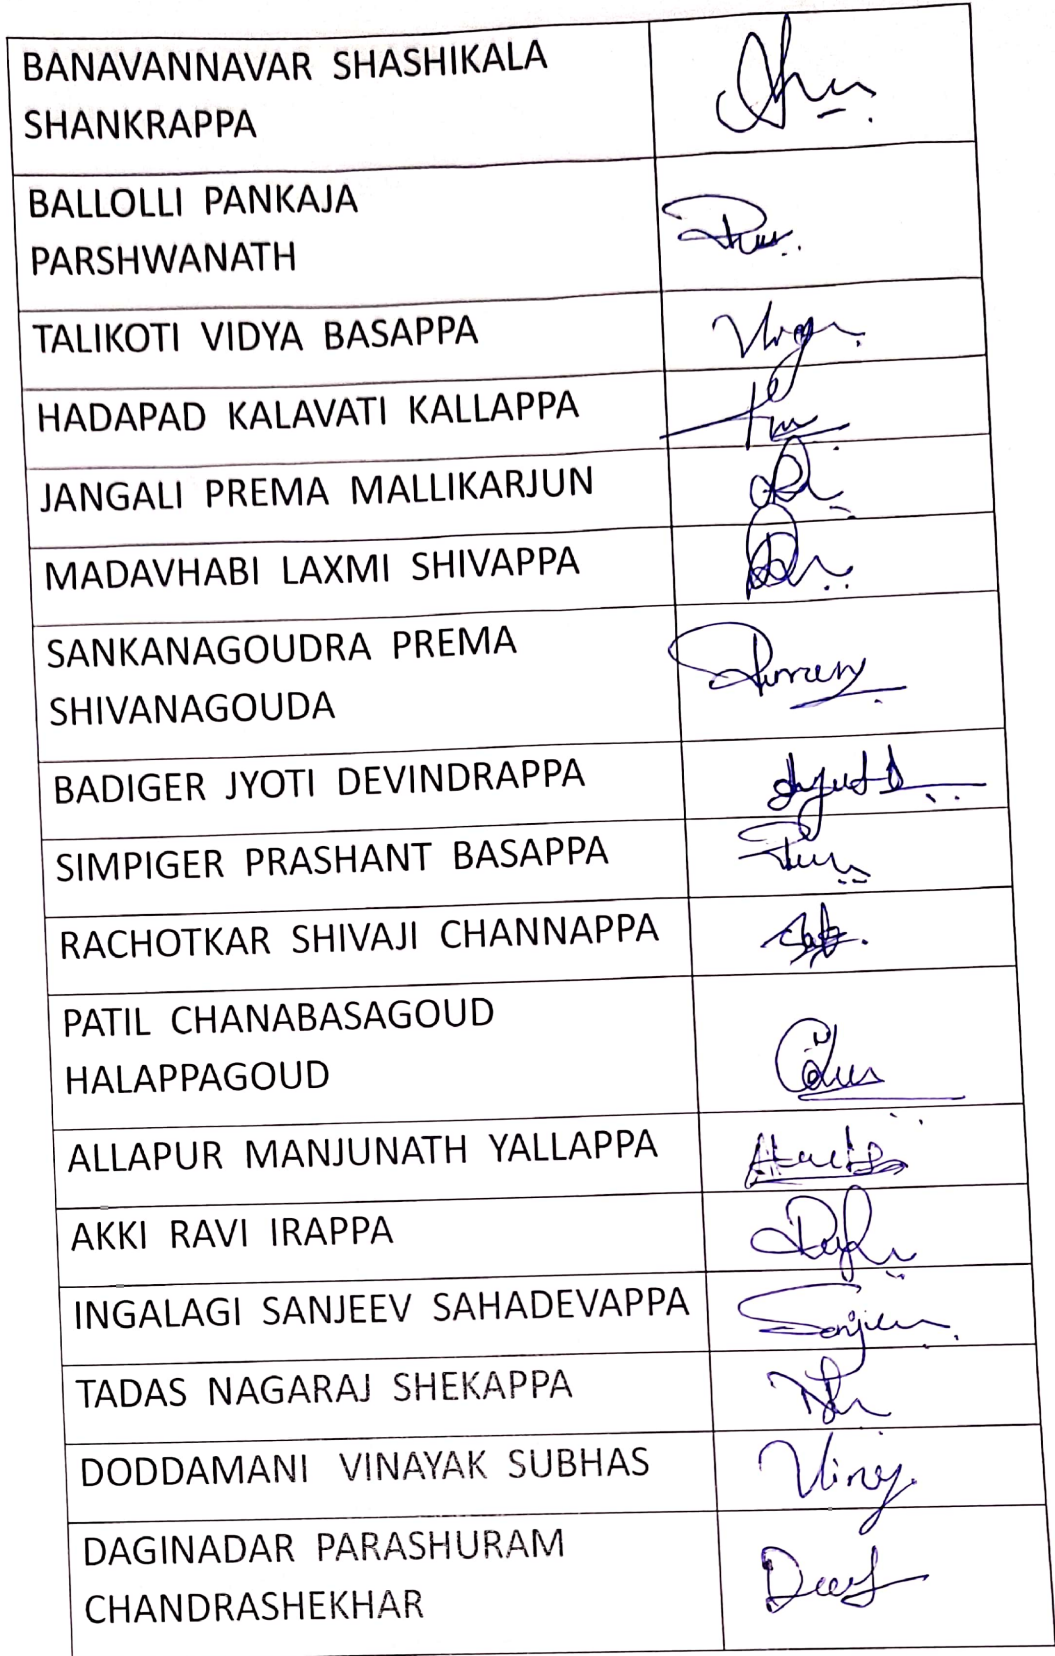 BANAVANNAVAR SHASHIKALA
SHANKRAPPA
BALLOLLI PANKAJA
PARSHWANATH
TALIKOTI VIDYA BASAPPA
HADAPAD KALAVATI KALLAPPA
JANGALI PREMA MALLIKARJUN
MADAVHABI LAXMI SHIVAPPA
SANKANAGOUDRA PREMA
SHIVANAGOUDA
BADIGER JYOTI DEVINDRAPPA
SIMPIGER PRASHANT BASAPPA
RACHOTKAR SHIVAJI CHANNAPPA
PATIL CHANABASAGOUD
HALAPPAGOUD
ALLAPUR MANJUNATH YALLAPPA
AKKI RAVI IRAPPA
INGALAGI SANJEEV SAHADEVAPPA
TADAS NAGARAJ SHEKAPPA
DODDAMANI VINAYAK SUBHAS
DAGINADAR PARASHURAM
CHANDRASHEKHAR